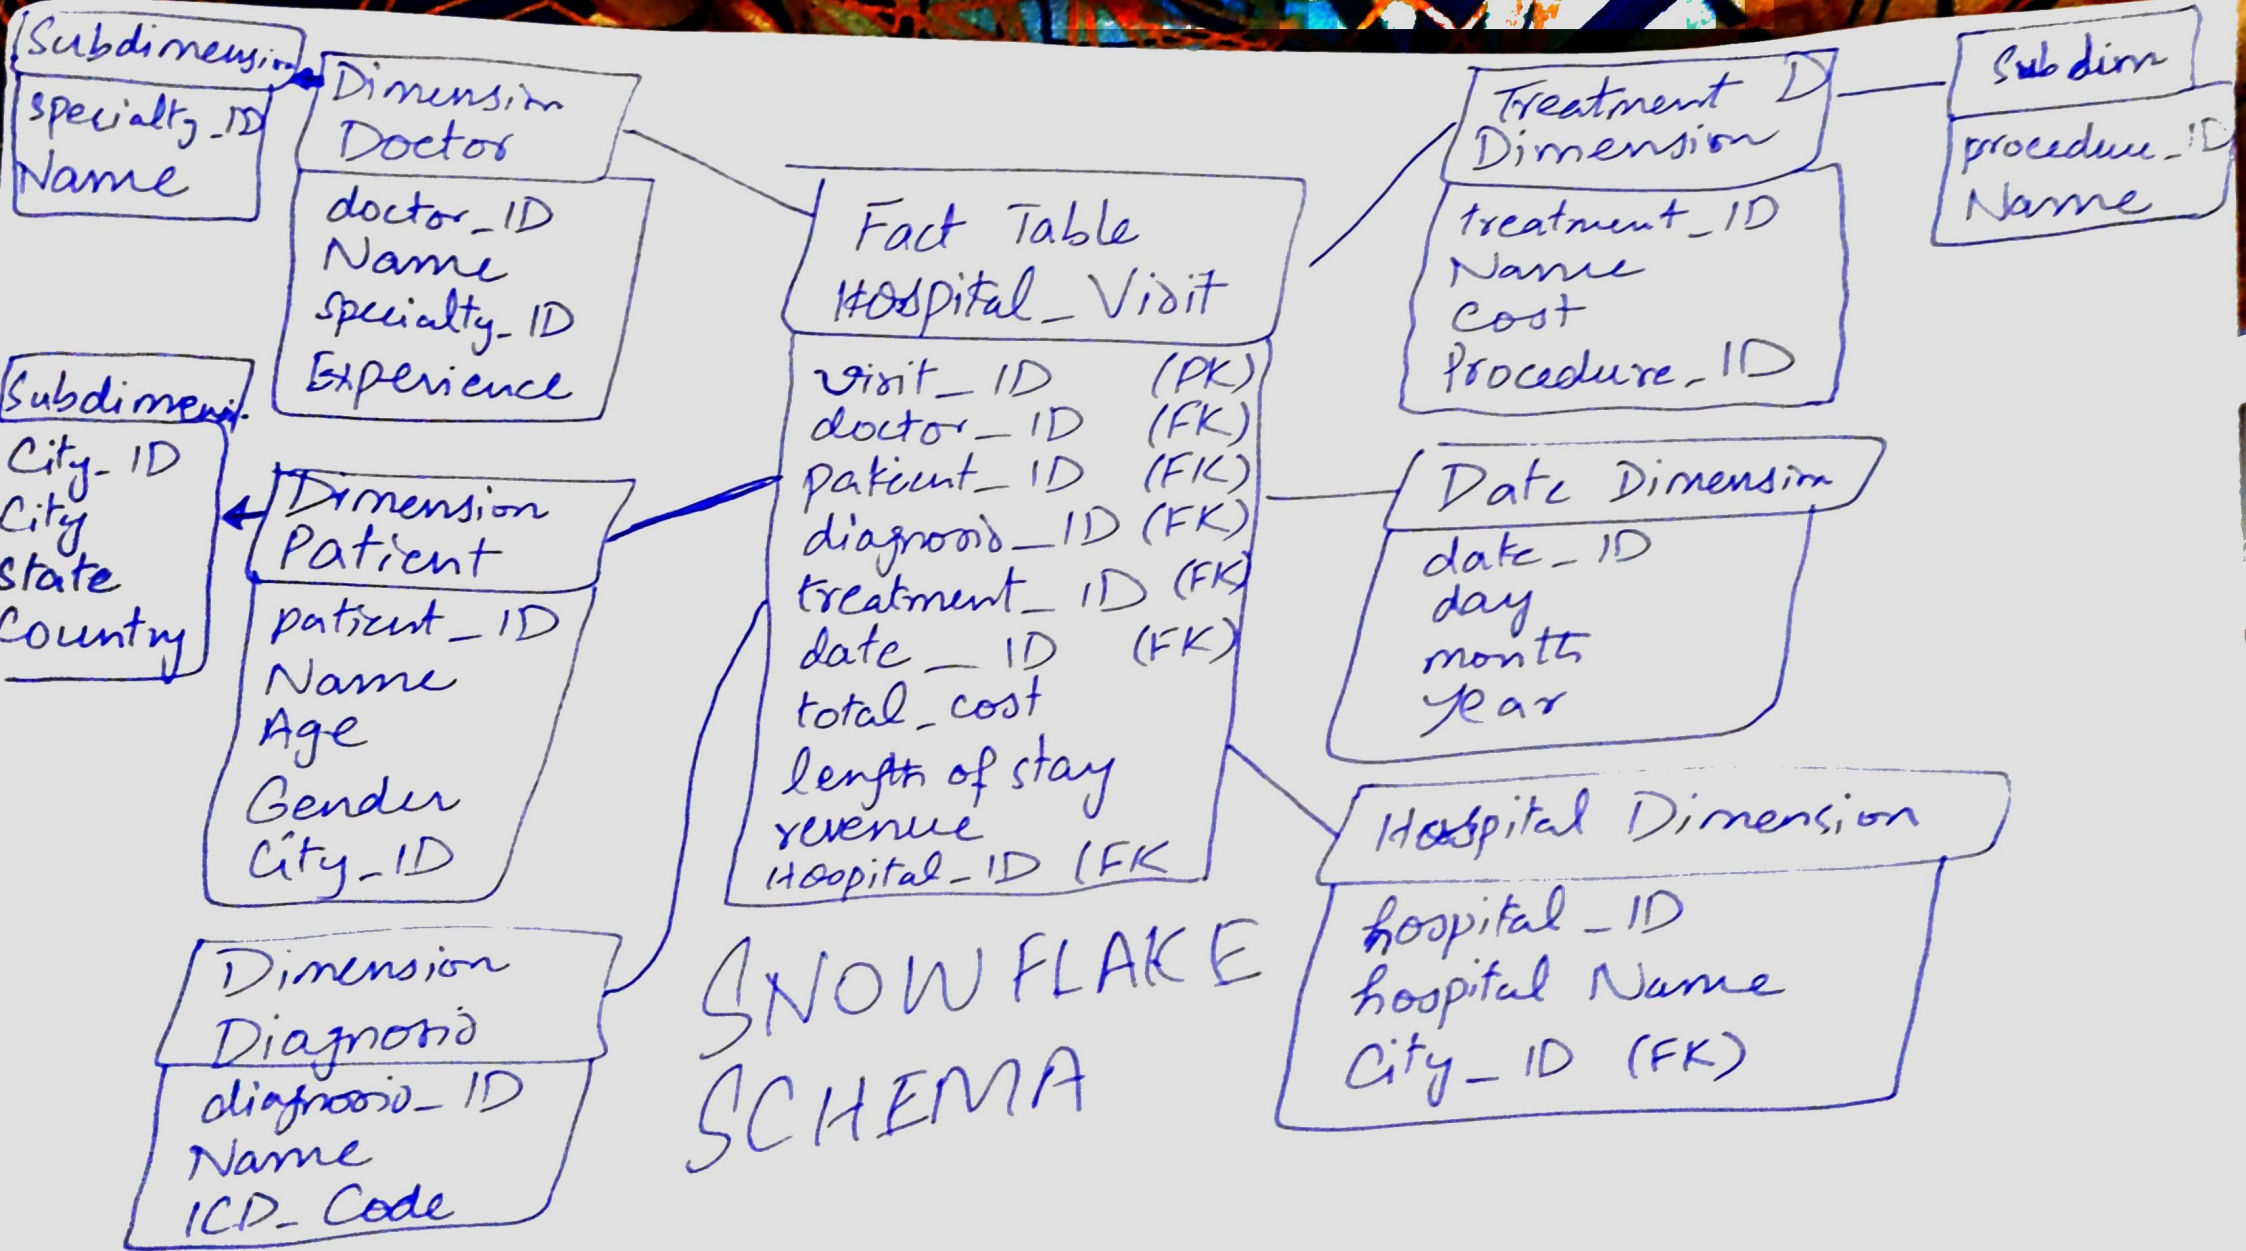 Subdimension
specialty_ID
Name
Dimension
Doctor
doctor_ID
Name
specialty_ID
Experience
Subdimensi.
City_ID
City
State
Country
Dimension
Patient
patient_ID
Name
Age
Gender
City_ID
Dimension
Diagnosis
diagnosis_ID
Name
ICD_Code
Fact Table
Hospital_Visit
visit_ID (PK)
doctor_ID (FK)
patient_ID (FK)
diagnosis_ID (FK)
treatment_ID (FK)
date_ID (FK)
total_cost
length of stay
revenue
Hospital_ID (FK
SNOWFLAKE
SCHEMA
Treatment D
Dimension
treatment_ID
Name
Cost
Procedure_ID
Subdim
procedure_ID
Name
Date Dimension
date_ID
day
month
year
Hospital Dimension
hospital_ID
hospital Name
City_ID (FK)